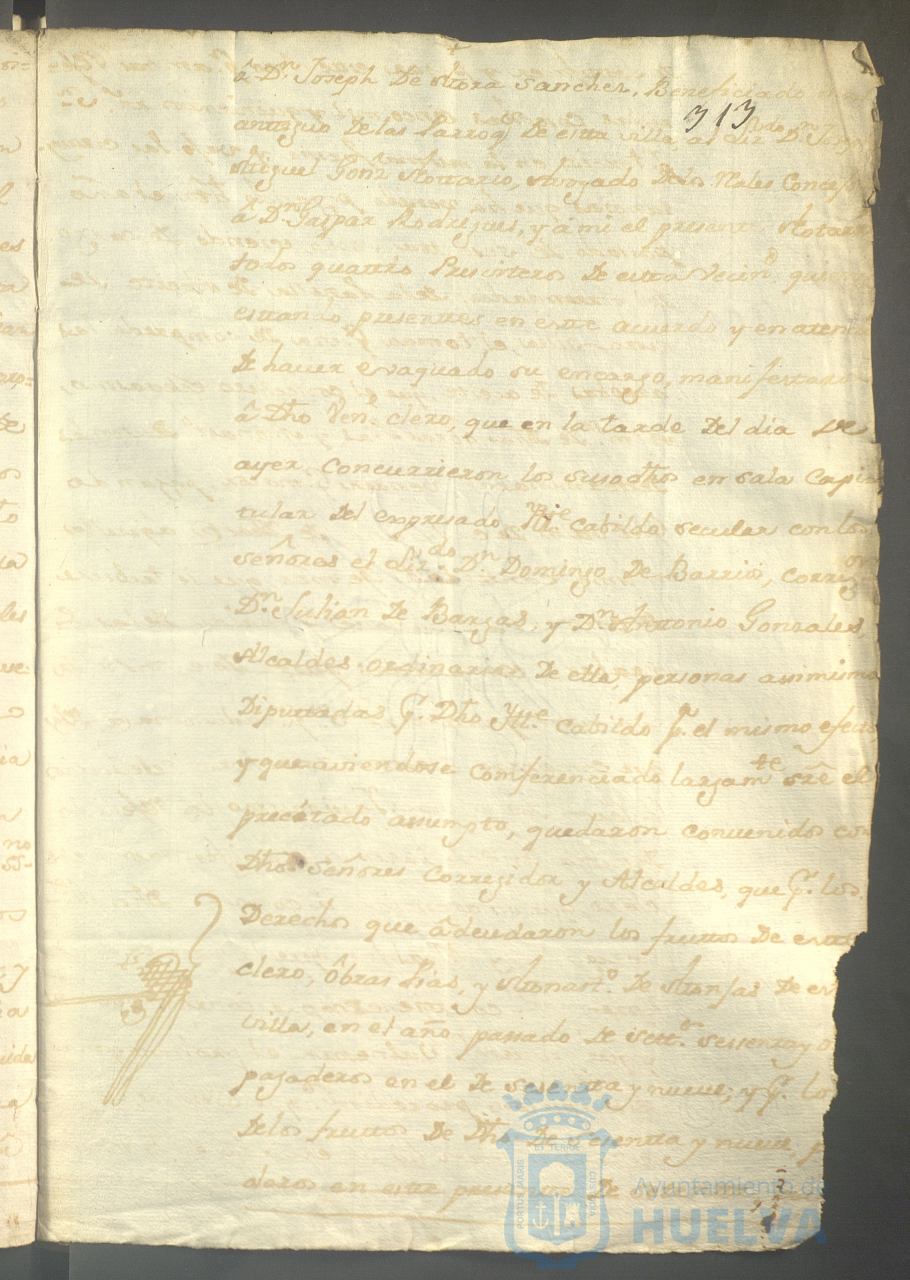 â Dn. Joseph De Mora Sanchez, Beneficiado
313
antiguo De las Parroq De esta villa al Liz.do Dn.
Miguel Gonz Notario, Avogado De los Rales Conce
â Dn. Gaspar Rodrigues, y â mi el presente Notar
todos quatro Presviteros De esta Vecind
estando presentes en este acuerdo y en aten
De haver evaquado su encargo, manifestaro
â Dho Ven. clero, que en la tarde Del dia De
ayer concurrieron los susodhos en sala Capi
tular Del expresado Ytte. Cabildo secular con los
señores el Liz.do Dn. Domingo De Barrios, Correg.or
Dn. Julian De Bargas, y Dn. Antonio Gonzales
Alcaldes ordinarios De ella, personas assimismo
Diputadas P. Dho Ytte. Cabildo P. el mismo efecto
y que aviendose comferenciado largam.te sre el
precitado assumpto, quedaron convenidos con
Dhos Señores Corregidor y Alcaldes, que P. los
Derechos que âdeudaron los fruttos De este
clero, ôbras Pias, y Monast.o De Monjas De es
villa, en el año passado De sett.a sessenta y o
pagaderos en el De sesentta y nueve, y P. lo
Delos fruttos De Dho De sesentta y nueve, p
deros en este presente De
PORTUS MARIS
ET TERRE
CUSTODIA
Ayuntamiento de
HUELVA